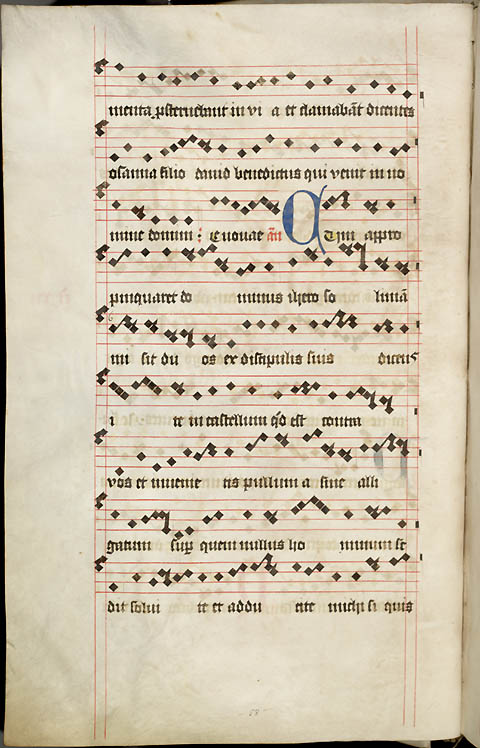 menta p̱sternebant in vi a et clamabāt dicentes
osanna filio dauid benedictus qui venit in no
mine domini : Euouae añ Cum appro
pinquaret do minus ihero so limā
mi sit du os ex discipulis suis dicens
i te in castellum qd est contra
vos et inuenie tis pullum a sine alli
gatum sup quem nullus ho minum se
dit solui te et addu cite michi si quis